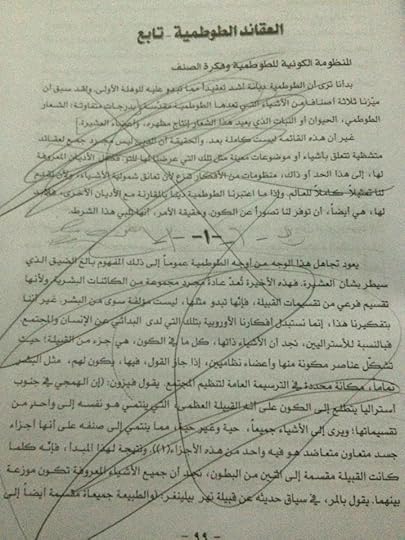 العقائد الطوطمية - تابع
المنظومة الكونية للطوطمية وفكرة الصنف
بدأنا نرى أن الطوطمية ديانة أشد تعقيداً مما تبدو عليه للوهلة الأولى. ولقد سبق أن
ميّزنا ثلاثة أصناف من الأشياء التي تعدها الطوطمية مقدسة بدرجات متفاوتة: الشعار
الطوطمي، الحيوان أو النبات الذي يعيد هذا الشعار إنتاج مظهره، وأعضاء العشيرة.
غير أن هذه القائمة ليست كاملة بعد. والحقيقة أن الدين ليس مجرد جمع لعقائد
متشظية تتعلق بأشياء أو موضوعات معينة مثل تلك التي عرضنا لها للتو. فكل الأديان المعروفة
لنا، إلى هذا الحد أو ذاك، منظومات من الأفكار تنزع لأن تعانق شمولية الأشياء، ولأن تقدم
لنا تمثيلاً كاملاً للعالم. وإذا ما اعتبرنا الطوطمية ديناً بالمقارنة مع الأديان الأخرى، فلا بد
لها، هي أيضاً، أن توفر لنا تصوراً عن الكون. وحقيقة الأمر، أنها تلبي هذا الشرط.
-١-
يعود تجاهل هذا الوجه من أوجه الطوطمية عموماً إلى ذلك المفهوم بالغ الضيق الذي
سيطر بشأن العشيرة. فهذه الأخيرة تُعدّ عادةً مجرد مجموعة من الكائنات البشرية. ولأنها
تقسيم فرعي من تقسيمات القبيلة، فإنها تبدو مثلها، ليست مؤلفة سوى من البشر. غير أننا
بتفكيرنا هذا، إنما نستبدل أفكارنا الأوروبية بتلك التي لدى البدائي عن الإنسان والمجتمع.
فبالنسبة للأستراليين، نجد أن الأشياء ذاتها، كل ما في الكون، هي جزء من القبيلة؛ حيث
تشكّل عناصر مكونة منها وأعضاء نظاميين، إذا جاز القول، فيها، يكون لهم، مثل البشر
تماماً، مكانة محددة في الترسيمة العامة لتنظيم المجتمع. يقول فيزون: (إن الهمجي في جنوب
أستراليا يتطلع إلى الكون على أنه القبيلة العظمى، التي ينتمي هو نفسه إلى واحد من
تقسيماتها؛ ويرى إلى الأشياء جميعاً، حية وغير حية، مما ينتمي إلى صنفه على أنها أجزاء
جسد متعاون متعاضد هو فيه واحد من هذه الأجزاء(١)). ونتيجة لهذا المبدأ، فإنه كلما
كانت القبيلة مقسمة إلى اثنين من البطون، نجد أن جميع الأشياء المعروفة تكون موزعة
بينهما. يقول بالمر، في سياق حديثه عن قبيلة نهر بيلينغر: (والطبيعة جميعاً مقسمة أيضاً إلى
- ٩٩ -